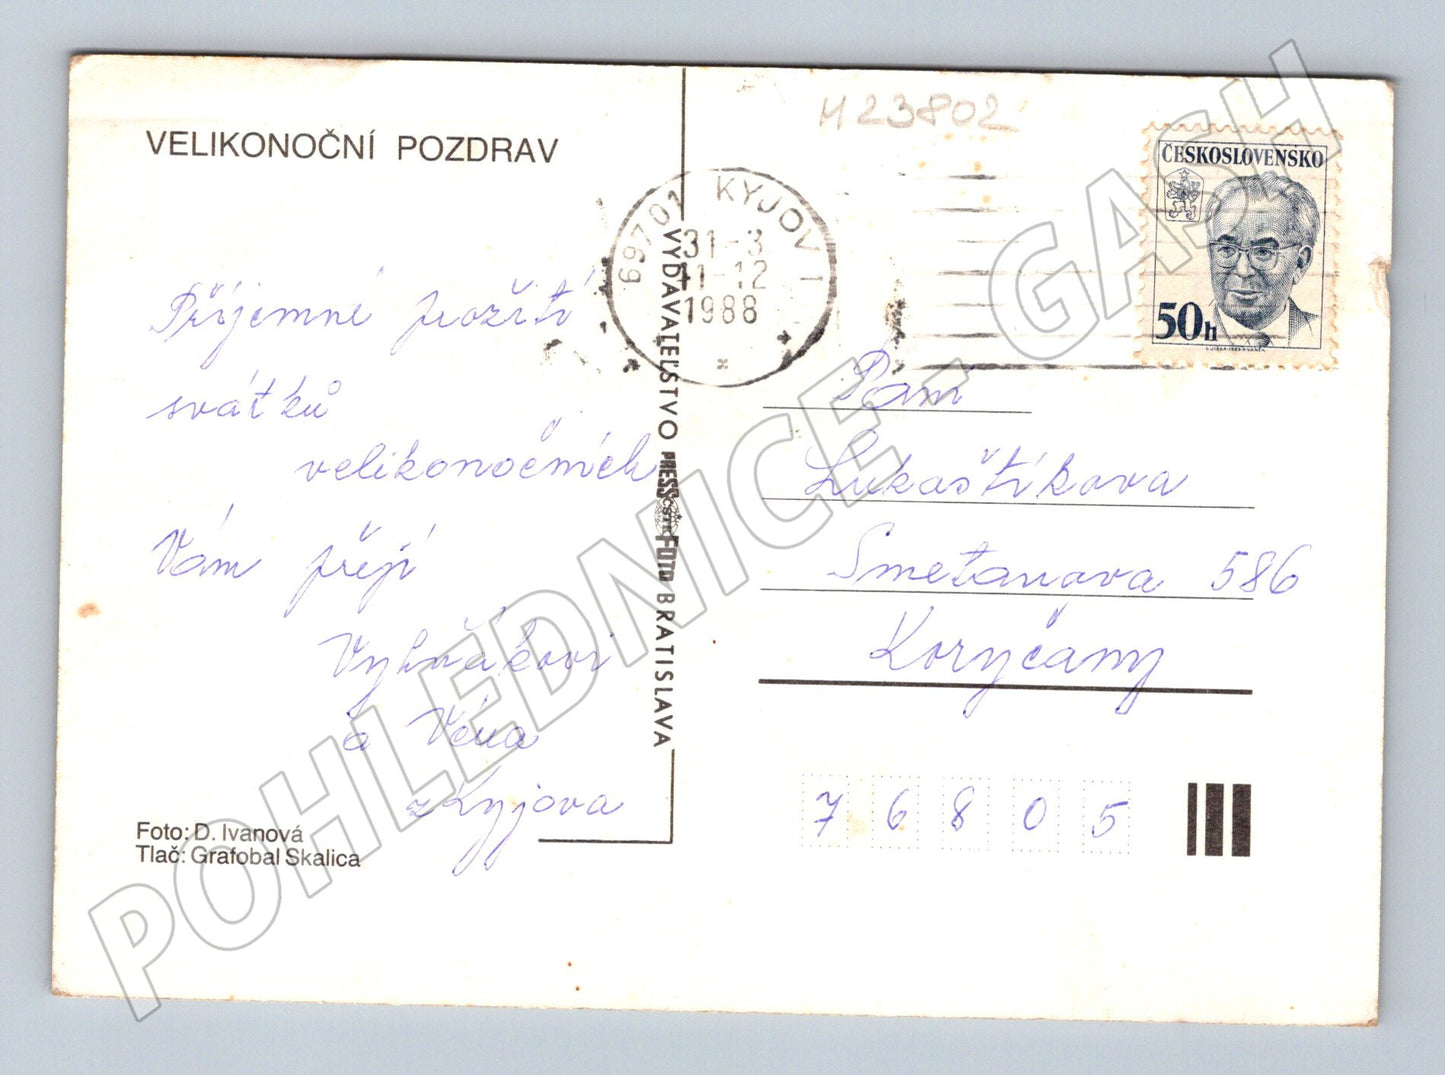 VELIKONOČNÍ POZDRAV
Příjemné prožití
svátků
velikonočních
Vám přejí
a Věra
z Kyjova
Foto: D. Ivanová
Tlač: Grafobal Skalica
VYDAVATEĽSTVO PRESSFOTO BRATISLAVA
ČSTK
M23802
69701 KYJOV 1
31-3
11-12
1988
ČESKOSLOVENSKO
50h
Paní
Lukaštíkova
Smetanova 586
Koryčany
76805
POHLEDNICE - GASH